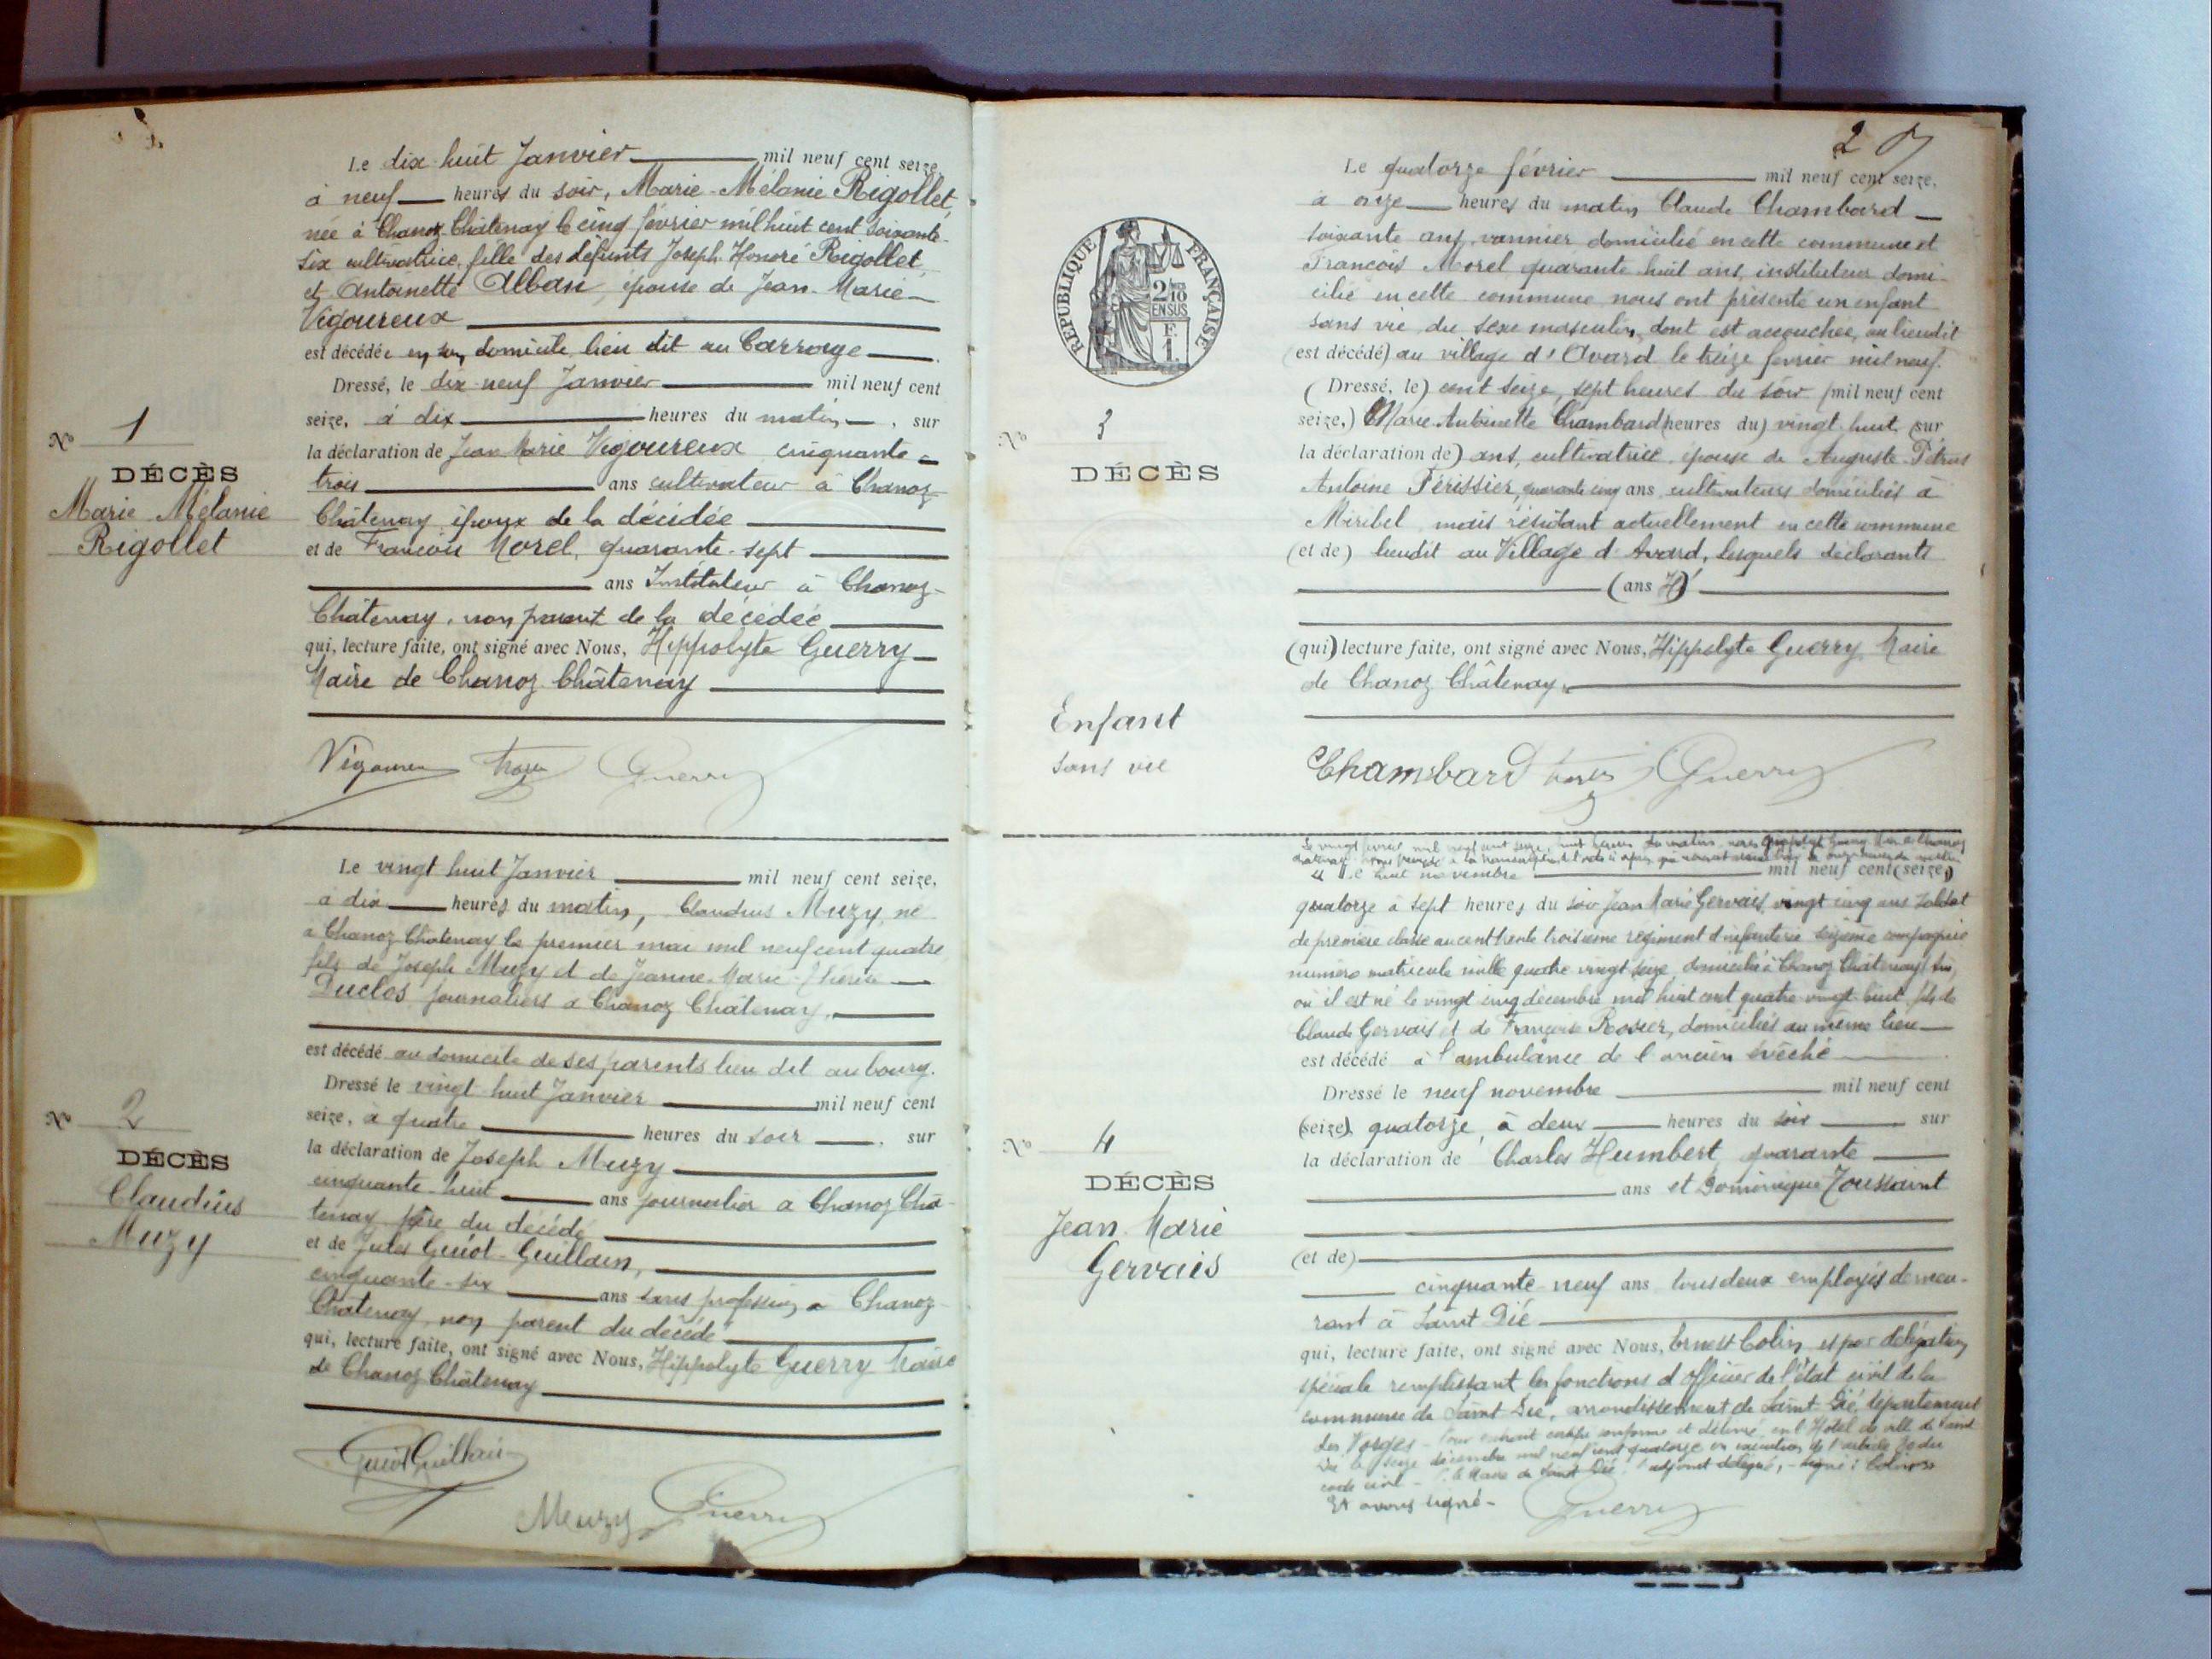 Le dix huit Janvier mil neuf cent seize,
à neuf heures du soir, Marie-Mélanie Rigollet,
née à Chanoz Châtenay le cinq février mil huit cent soixante-
six cultivatrice, fille des défunts Joseph Honoré Rigollet,
et Antoinette Alban, épouse de Jean-Marie
Vigoureux
est décédée en son domicile, lieu dit au Carrouge.
Dressé, le dix neuf Janvier mil neuf cent
seize, à dix heures du matin, sur
la déclaration de Jean Marie Vigoureux cinquante
trois ans cultivateur à Chanoz
Châtenay, époux de la décédée
et de François Morel, quarante-sept
ans Instituteur à Chanoz-
Châtenay, non parent de la décédée
qui, lecture faite, ont signé avec Nous, Hippolyte Guerry
Maire de Chanoz Châtenay
No 1
DÉCÈS
Marie Mélanie
Rigollet
Vigoureux Morel Guerry
Le vingt huit Janvier mil neuf cent seize,
à dix heures du matin, Claudius Muzy, né
à Chanoz Châtenay le premier mai mil neuf cent quatre
fils de Joseph Muzy et de Jeanne-Marie
Duclos journaliers à Chanoz Châtenay,
est décédé au domicile de ses parents lieu dit au bourg.
Dressé le vingt huit Janvier mil neuf cent
seize, à quatre heures du soir, sur
la déclaration de Joseph Muzy
cinquante-huit ans journalier à Chanoz Châ-
tenay père du décédé
et de Jules Guiot-Guillain,
cinquante-six ans sans profession à Chanoz
Châtenay, non parent du décédé
qui, lecture faite, ont signé avec Nous, Hippolyte Guerry Maire
de Chanoz Châtenay
No 2
DÉCÈS
Claudius
Muzy
Guiot Guillain
Meuzy Guerry
2
RÉPUBLIQUE FRANÇAISE
2/10
EN SUS
F
1
Le quatorze février mil neuf cent seize,
à onze heures du matin Claude Chambard
soixante ans, vannier domicilié en cette commune et
François Morel quarante huit ans, instituteur domi-
cilié en cette commune nous ont présenté un enfant
sans vie du sexe masculin, dont est accouchée, au lieudit
(est décédé) au village d'Avard le treize février mil neuf
(Dressé, le) cent seize, sept heures du soir (mil neuf cent
seize,) Marie Antoinette Chambard (heures du) vingt-huit (sur
la déclaration de) ans, cultivatrice, épouse de Auguste-Pétrus
Antoine Férissier, quarante cinq ans cultivateurs domiciliés à
Miribel mais résidant actuellement en cette commune
(et de) lieudit au Village d'Avard, lesquels déclarants
(ans)
(qui) lecture faite, ont signé avec Nous, Hippolyte Guerry, Maire
de Chanoz Châtenay
No 3
DÉCÈS
Enfant
sans vie
Chambard Morel Guerry
Le vingt mil neuf cent seize, huit heures du matin, nous
à la transcription
Le huit novembre mil neuf cent (seize)
quatorze à sept heures du soir Jean Marie Gervais, vingt cinq ans soldat
de première classe au cent trente troisième régiment d'infanterie seizième compagnie
numéro matricule mille quatre vingt seize, domicilié à Chanoz Châtenay Ain,
où il est né le vingt cinq décembre mil huit cent quatre vingt huit, fils de
Claude Gervais et de Françoise Rosier, domiciliés au même lieu
est décédé à l'ambulance de l'ancien évêché
Dressé le neuf novembre mil neuf cent
(seize) quatorze, à deux heures du soir sur
la déclaration de Charles Humbert quarante
ans et Dominique Toussaint
(et de)
cinquante neuf ans tous deux employés demeu-
rant à Saint Dié
qui, lecture faite, ont signé avec Nous, Ernest Colin et par délégation
spéciale remplissant les fonctions d'officier de l'état civil de la
commune de Saint Dié, arrondissement de Saint Dié, département
des Vosges - Pour extrait certifié conforme et délivré en l'Hôtel de ville de Saint
Dié le seize décembre mil neuf cent quatorze en exécution de l'article 80 du
code civil - le Maire de Saint Dié l'adjoint délégué, - signé: Colin
Et avons signé -
Guerry
No 4
DÉCÈS
Jean Marie
Gervais